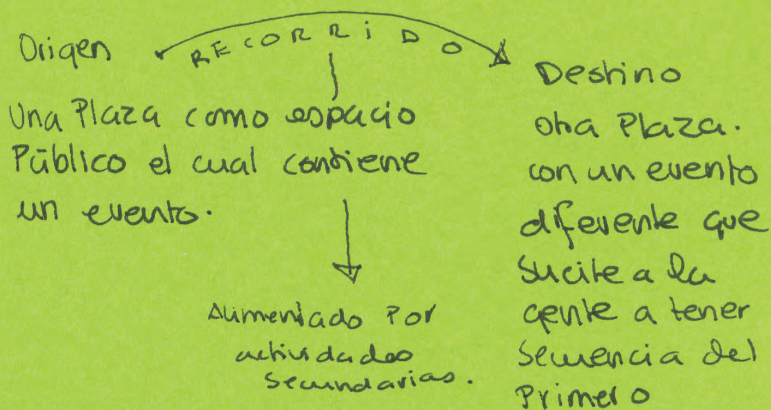 Origen
RECORRIDO
Una Plaza como espacio
Público el cual contiene
un evento.
Alimentado por
actividades
secundarias.
Destino
otra Plaza.
con un evento
diferente que
sucite a la
gente a tener
secuencia del
Primero